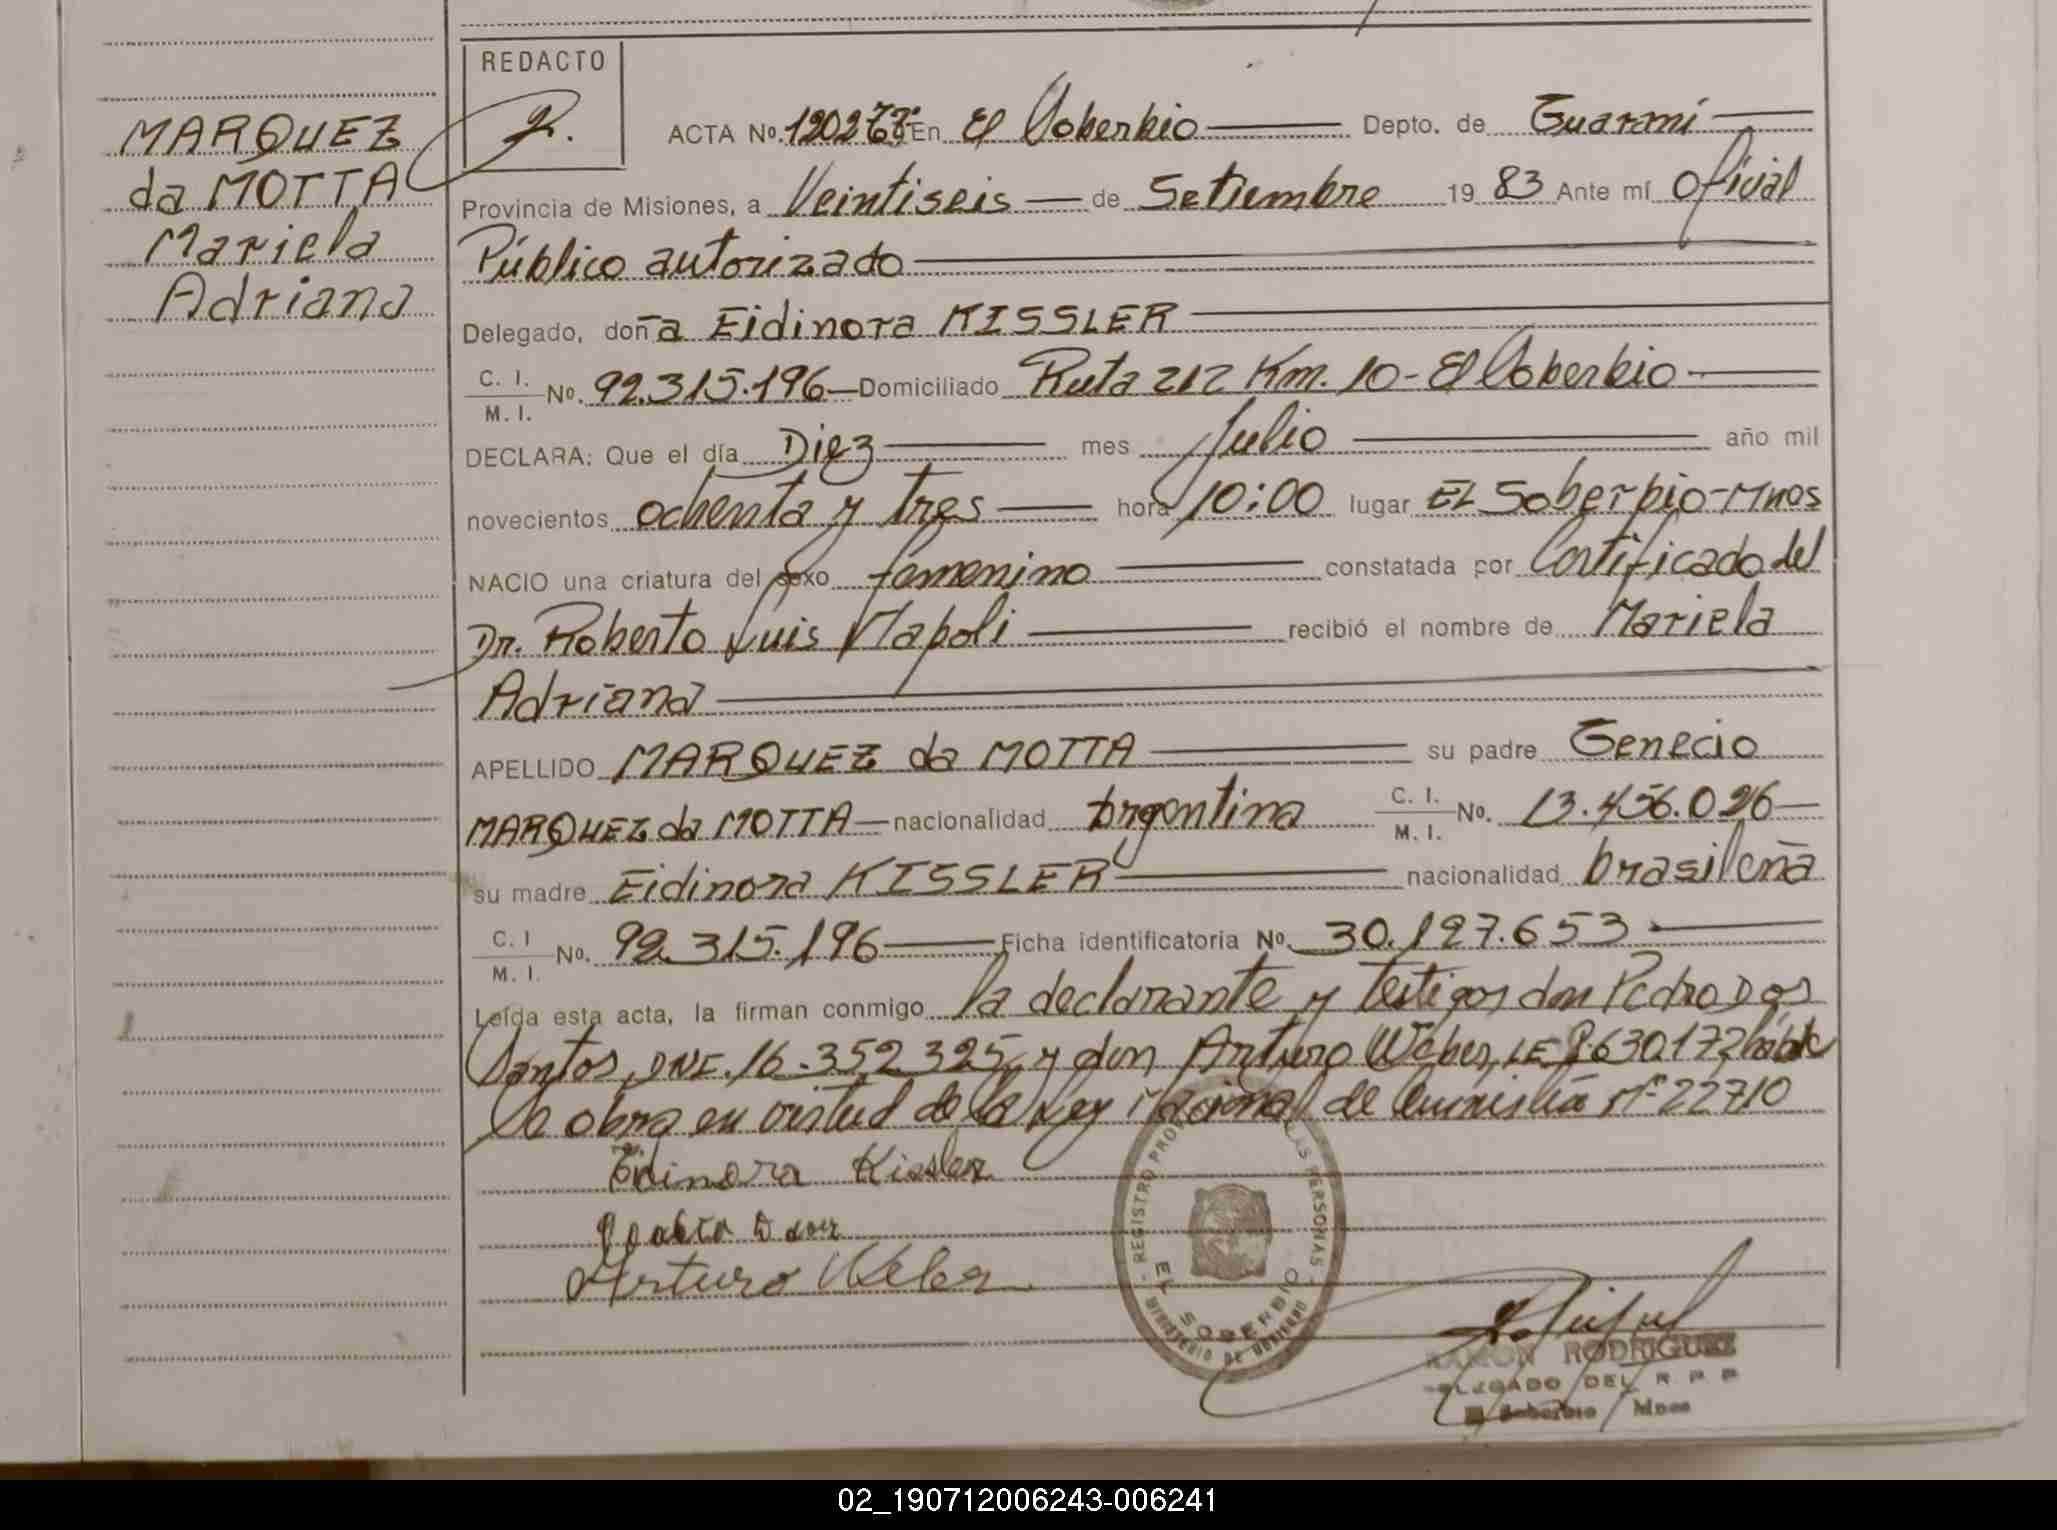 MARQUEZ
da MOTTA
Mariela
Adriana
REDACTO
ACTA No. En El Soberbio Depto. de Guaraní
Provincia de Misiones, a Veintiseis de Setiembre 19 83 Ante mí Oficial
Público autorizado
Delegado, doña Eidinora KISSLER
C. I.
M. I. No. 92.315.196 Domiciliado Ruta 212 Km. 10 - El Soberbio
DECLARA: Que el día Diez mes Julio año mil
novecientos ochenta y tres hora 10:00 lugar El Soberbio-Mnes
NACIO una criatura del sexo femenino constatada por Certificado del
Dr. Roberto Luis Napoli recibió el nombre de Mariela
Adriana
APELLIDO MARQUEZ da MOTTA su padre Genecio
MARQUEZ da MOTTA nacionalidad Argentina C. I.
M. I. No. 13.456.026
su madre Eidinora KISSLER nacionalidad brasileña
C. I
M. I. No. 92.315.196 Ficha identificatoria No. 30.127.653
Leída esta acta, la firman conmigo la declarante y testigos don Pedro Dos
Santos, DNI. 16.352.325, y don Arturo Weber, LE 8.630.172
Se obra en virtud de la Ley Nacional de Amnistía nº 22710
Eidinora Kissler
Arturo Weber
REGISTRO PROV LAS PERSONAS
EL SOBERBIO
MINISTERIO DE GOBIERNO
RAMON RODRIGUEZ
DELEGADO DEL R. P. P
El Soberbio Mnes
02_190712006243-006241